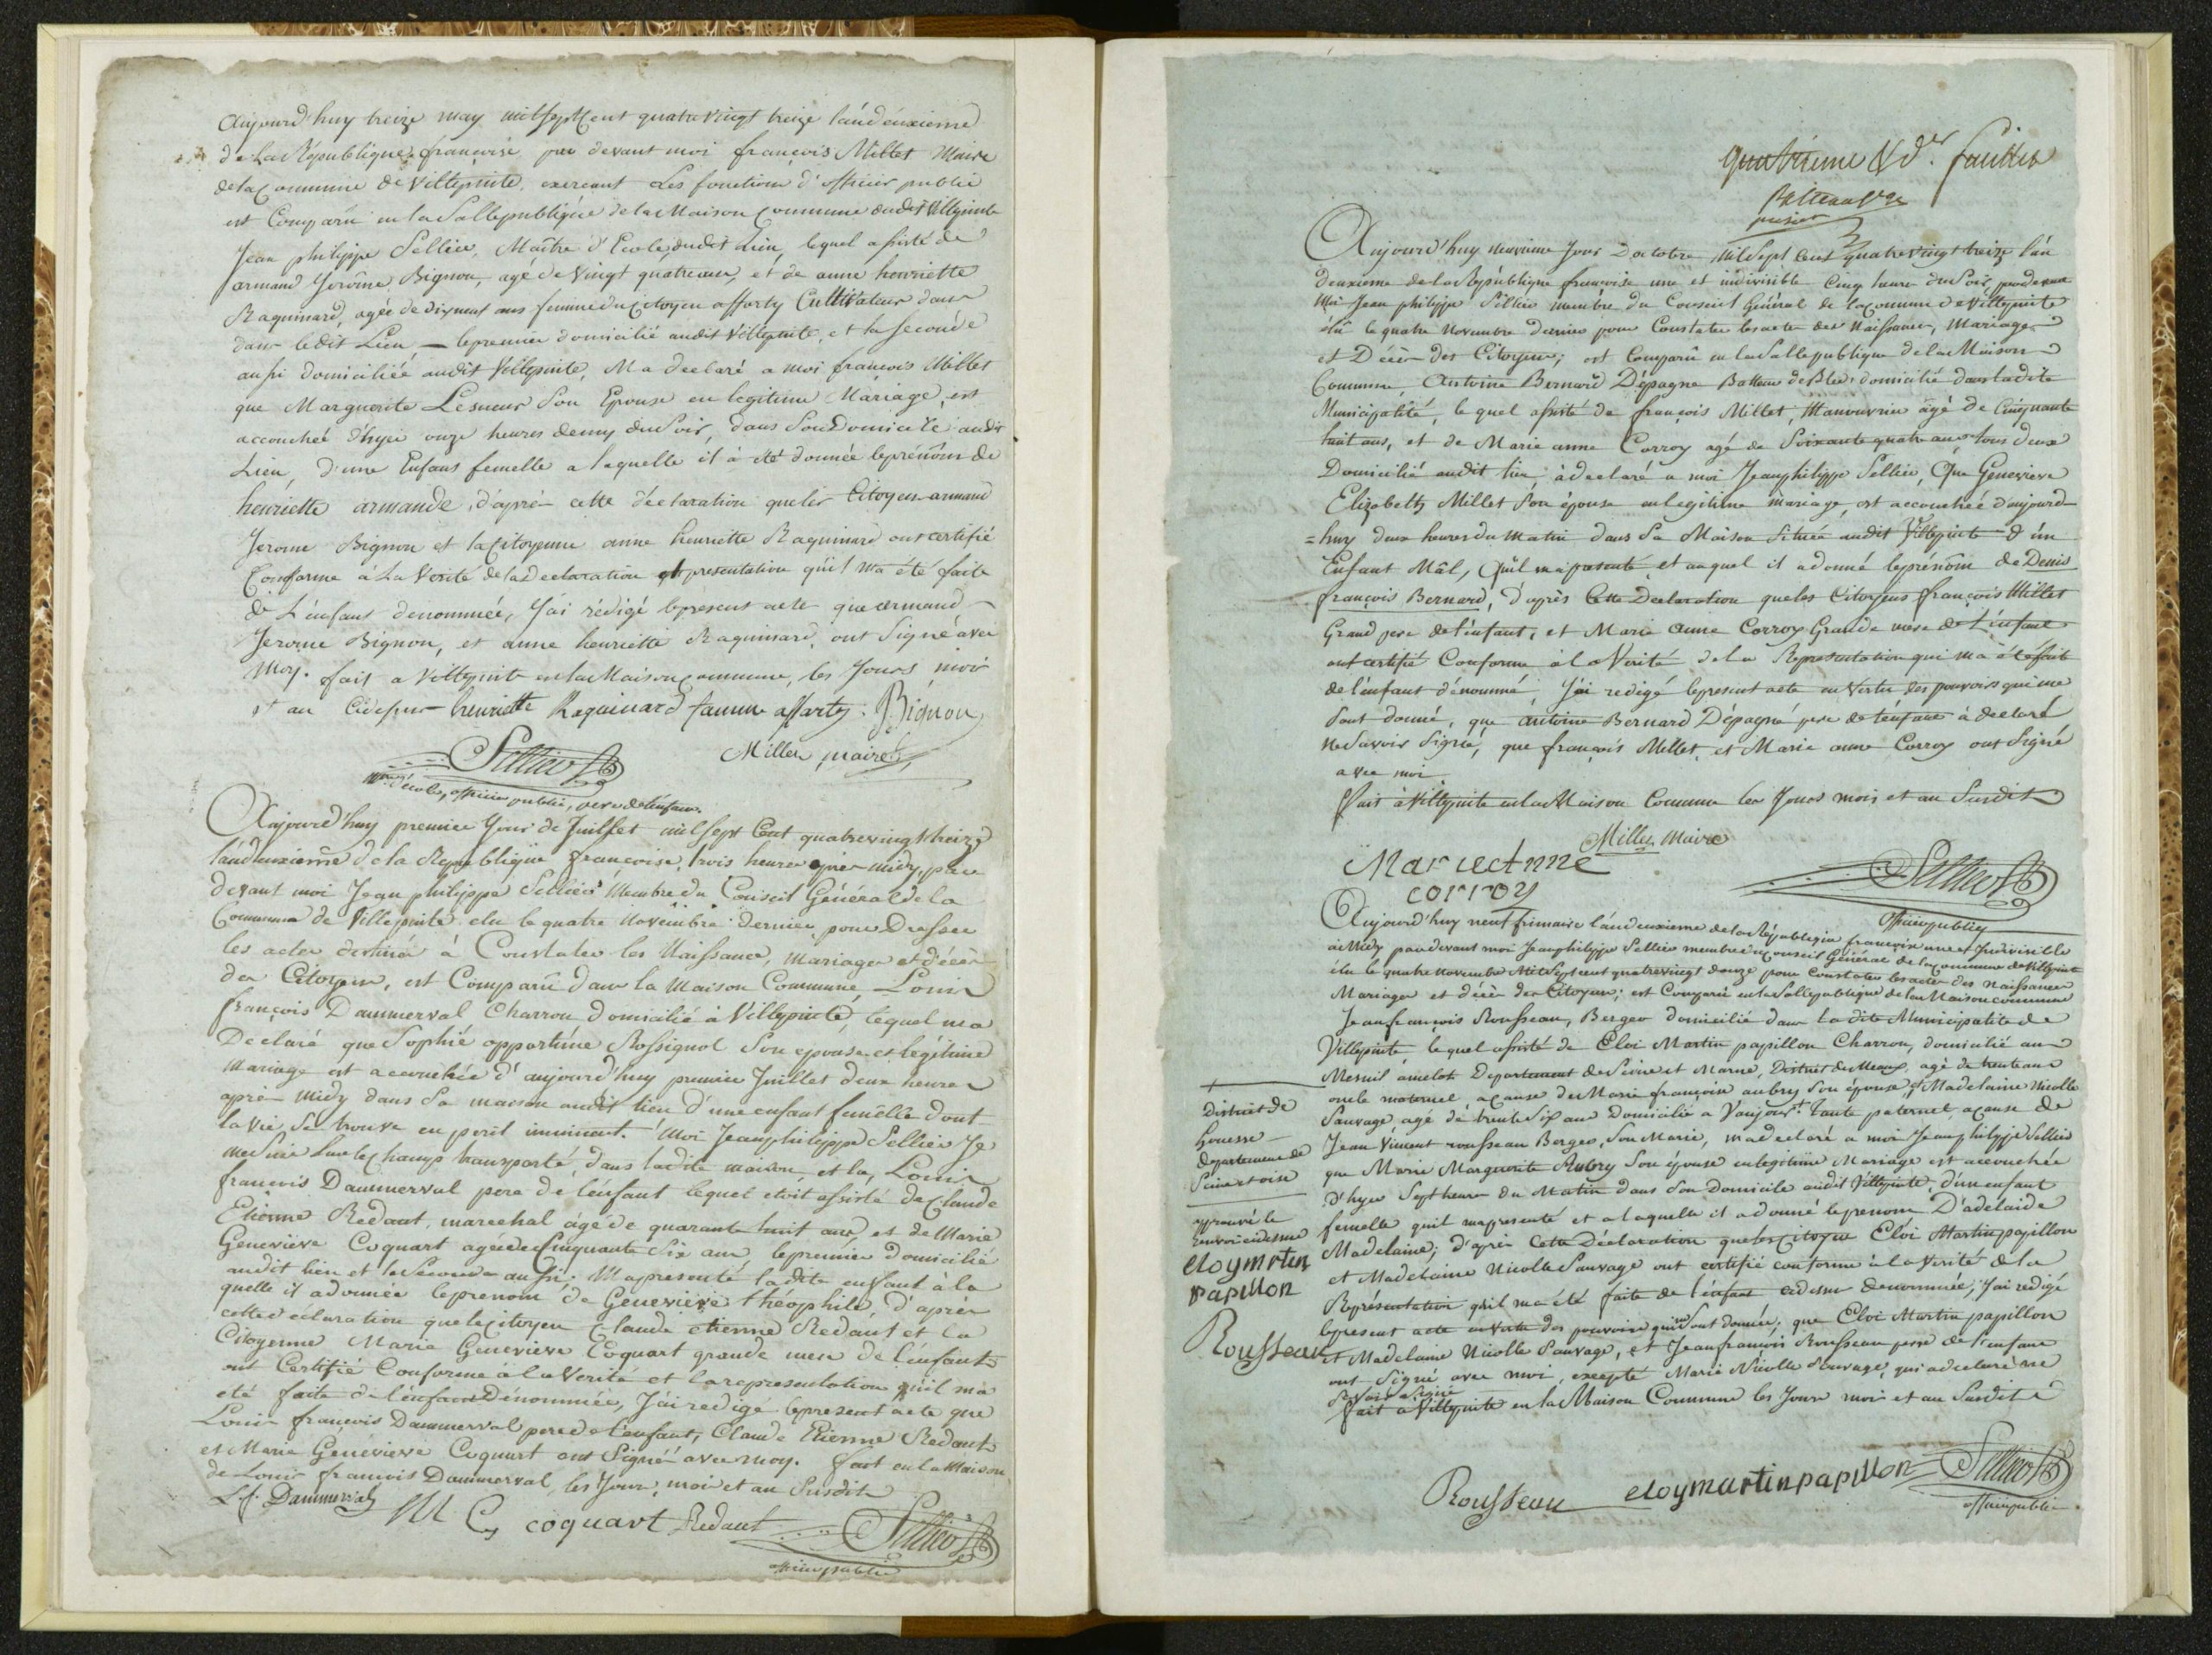 Aujourd'huy treize may milseptCent quatrevingt treize l'and'euxieme
de La République françoise par devant moi françois Millet Maire
dela Commune de villepinte, exercant Les fonctions d'officier public
est Comparû en la Salle publique de la Maison Commune dudit villepinte
Jean philippe Sellier, Maître d'Ecole dudit Lieu, lequel assisté de
armand Jerôme Bignon, agé de vingt quatre ans, et de anne henriette
Raquinard, agée de dixneuf ans femme du Citoyen afforty Cultivateur dans
dans ledit Lieu — le premier domicilié audit villepinte, et la seconde
aussi domiciliéé audit villepinte, Ma declaré a moi françois Millet
que Marguerite Lesueur Son Epouse en legitime Mariage, est
accouchéé d'hyer onze heures demy du Soir, dans Son Domicile audit
Lieu, d'une Enfans femelle a laquelle il à été donnée leprénom de
henriette armande, d'après cette déclaration que les Citoyen armand
Jerome Bignon et la Citoyenne anne henriette Raquinard ont certifié
Conforme à La Verité de la declaration et presentation qu'il ma été faite
de L'enfant denommée, J'ai rédigé lepresent acte que armand
Jerome Bignon, et anne henriette Raquinard, ont Signé avec
Moy. fait a villepinte en la Maison Commune, les Jours mois
et an Cidessus henriette Raquinard famme afforty. Bignon
Millet maire
Sellier
M.e d'école, officier public, pere de l'enfant.
Aujourd'huy premier Jour de Juillet mil sept Cent quatrevingt treize
l'and'euxieme de la République françoise, trois heures après midy, par
devant moi Jean philippe Sellier Membre du Conseil Général de la
Commune de Villepinte elu le quatre novembre dernier pour Dresser
les actes destinés à Constater les Naissances, mariages et décès
des Citoyens, est Comparû dans la Maison Commune Louis
françois Dammerval Charron domicilié à Villepinte, lequel ma
Declaré que Sophie opportune Rossignol Son epouse et légitime
mariage est accouchée d'aujourd'huy premier Juillet deux heures
après midy dans Sa maison audit lieu d'une enfant femelle dont
la vie, se trouve en peril imminent. Moi Jean philippe Sellier Je
me Suis Sur le Champs transporté, dans ladite maison, et la, Louis
françois Dammerval pere de l'enfant lequel etoit assisté de Claude
Etienne Redaut, marechal âgé de quarante huit ans, et de Marie
Geneviève Coquart agée de Cinquante Six ans, le premier domicilié
audit lieu et la Seconde aussi. M'a presenté ladite enfant à la
quelle il a donnée leprenom de Geneviéve théophile, d'après
cette declaration que le Citoyen Claude etienne Redaut et la
Citoyenne Marie Genevieve Coquart grande mere de l'enfant
ont Certifié Conforme à la Verité et la representation qu'il m'a
eté faite de l'enfant Dénommée, J'ai redigé lepresent acte que
Louis françois Dammerval pere de l'enfant, Claude Etienne Redaut
et Marie Genevieve Coquart ont Signéé avec moy. fait en la Maison
de Louis françois Dammerval, les Jour, mois et an Susdit
L. f. Dammerval M G coquart Redaut Sellier
officier public
quatrieme & d.er feuillet
Aujourd'huy neuvieme Jour Doctobre Mil Sept Cent quatre vingt treize l'an
deuxieme de la République françoise une et indivisible Cinq heures du Soir, pardevant
Moi Jean philippe Sellier membre du Conseil Général de la Commune de villepinte
élû le quatre Novembre dernier pour Constater les actes des Naissances, Mariages
et Décès des Citoyens; est Comparû en la Salle publique de la Maison
Commune Antoine Bernard Dépagne Batteur de Bled domicilié dans ladite
Municipalité, le quel assisté de françois Millet, Manouvrier âgé de Cinquante
huit ans, et de Marie anne Corroy agé de Soixante quatre ans tous deux
Domicilié audit lieu, à declaré a moi Jean philippe Sellier, Que Genevieve
Elizabeth Millet Son épouse en legitime mariage, est accouchéé d'aujourd
=huy deux heures du matin dans Sa Maison Située audit Villepinte d'un
Enfant Mâl, Qu'il m'a presenté et auquel il a donné leprénom de Denis
françois Bernard, d'après Cette Declaration que les Citoyens françois Millet
Grand pere de l'enfant, et Marie Anne Corroy Grande mere de l'enfant
ont certifié Conforme à la Verité de la Representation qui m'a été fait
de l'enfant dénommé J'ai redigé lepresent acte en Vertu des pouvoirs qui me
Sont donné, que Antoine Bernard Dépagne pere de l'enfant à declaré
ne Savoir Signée, que françois Millet, et Marie anne Corroy ont Signé
avec moi
fait à Villepinte en la Maison Commune les Jours mois et an Susdit
Millet maire
Marie Anne
corroy
Sellier
officier public
Aujourd'huy neuf frimaire l'an deuxieme de la République françoise une et Indivisible
à Midy par devant moi Jean philippe Sellier membre du Conseil Général de la Commune de Villepinte
élu le quatre novembre Mil Sept cent quatrevingt douze pour Constater les actes des Naissances
Mariages et décès des Citoyens; est Comparû en la Salle publique de la Maison commune
Jean françois Rousseau, Berger domicilié dans ladite Municipalité de
Villepinte lequel assisté de Eloi Martin papillon Charron, domicilié au
Mesnil amelot Departement de Seine et Marne, District de Meaux, agé de trente ans
oncle maternel a cause de Marie françoise aubry Son épouse, et Madelaine Nicolle
Sauvage agé de trente Six ans Domiciliée a Vaujour+ tante paternel a cause de
Jean Vincent rousseau Berger, Son Marie, m'a declaré a moi Jean philippe Sellier
que Marie Marguerite Aubry Son épouse en legitime Mariage est accouchée
d'hyer Sept heures du Matin dans Son Domicile audit Villepinte, d'une enfant
femelle qu'il m'a presenté et a laquelle il a donné leprenom D'adelaide
Madelaine; d'après Cette Déclaration que les Citoyens Eloi Martin papillon
et Madelaine Nicolle Sauvage ont certifié conforme à la Verité de la
Représentation qu'il m'a été faite de l'enfant cidessus denommée, J'ai redigé
lepresent acte en Vertu des pouvoirs qui me Sont donnée; que Eloi Martin papillon
et Madelaine Nicolle Sauvage, et Jean françois Rousseau pere de l'enfant
ont Signé avec moi, excepté Marie Nicolle Sauvage, qui a declaré ne
Savoir Signé
fait a Villepinte en la Maison Commune les Jours mois et an Susdit
+
District de
Gonesse
departement de
Seine et oise
approuvé le
renvoi cidessus
eloy martin
papillon
Rousseau
Rousseau eloymartinpapillon Sellier
officier public